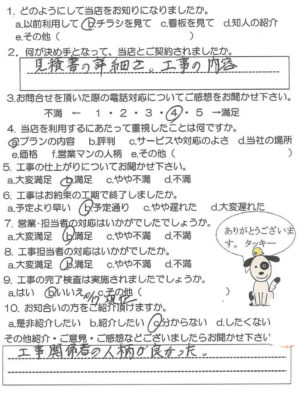 1. どのようにして当店をお知りになりましたか。
a.以前利用して b.チラシを見て c.看板を見て d.知人の紹介
e.その他（ ）
2. 何が決め手となって、当店とご契約されましたか。
見積書の詳細さ。工事の内容
3.お問合せを頂いた際の電話対応についてご感想をお聞かせ下さい。
不満 ← 1・2・3・4・5 →満足
4. 当店を利用するにあたって重視したことは何ですか。
a.プランの内容 b.評判 c.サービスや対応のよさ d.当社の場所
e.価格 f.営業マンの人柄 e.その他（ ）
5. 工事の仕上がりについてお聞かせ下さい。
a.大変満足 b.満足 c.やや不満 d.不満
6. 工事はお約束の工期で終了しましたか。
a.予定より早い b.予定通り c.やや遅れた d.大変遅れた
7. 営業・担当者の対応はいかがでしたでしょうか。
a.大変満足 b.満足 c.やや不満 d.不満
8. 工事担当者の対応はいかがでしたか。
a.大変満足 b.満足 c.やや不満 d.不満
ありがとうございま
す。タッキー
9. 工事の完了検査は実施されましたでしょうか。
a.はい b.いいえ c.その他（ ）
10. お知り合いの方をご紹介頂けますか。
a.是非紹介したい b.紹介したい c.分からない d.したくない
その他紹介・ご意見・ご感想などございましたらお聞かせ下さい
工事関係者の人柄が良かった。